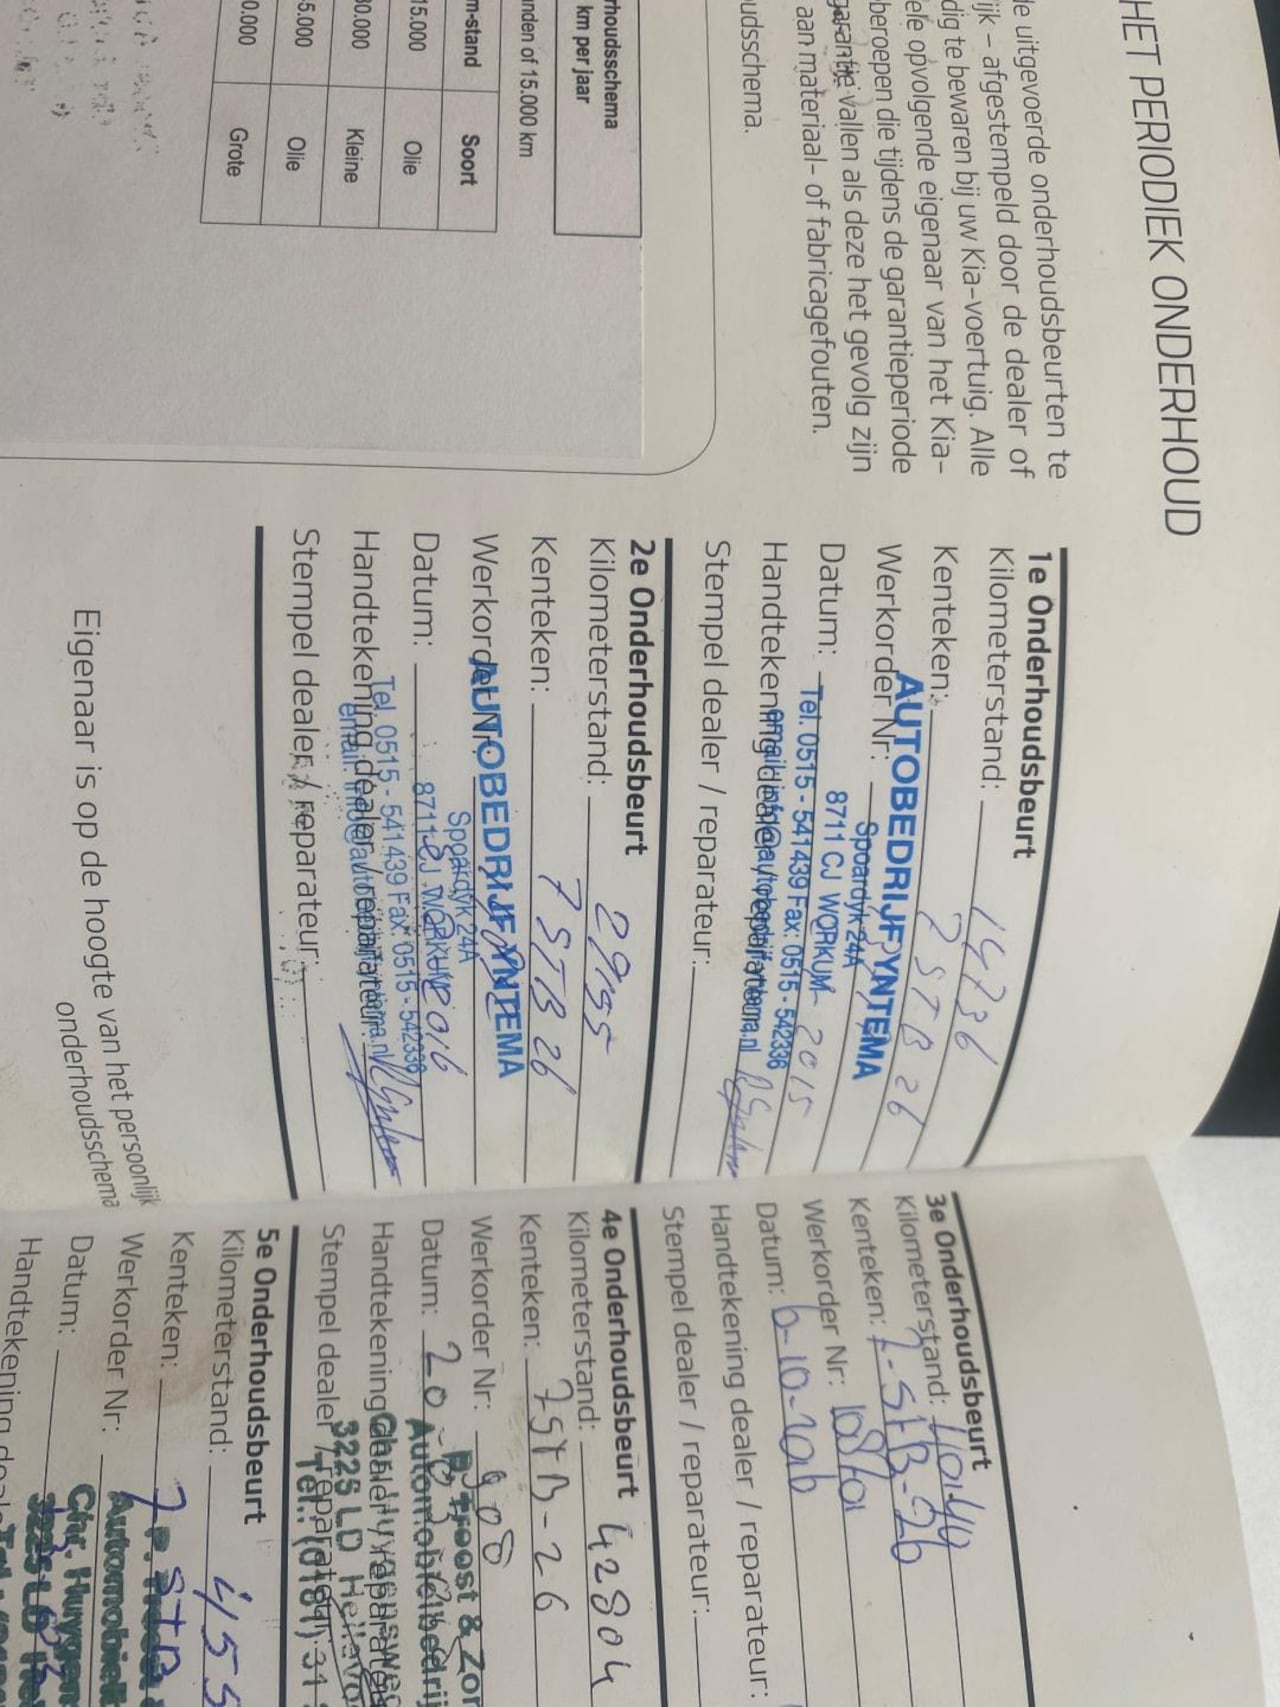 HET PERIODIEK ONDERHOUD
de uitgevoerde onderhoudsbeurten te
ijk – afgestempeld door de dealer of
dig te bewaren bij uw Kia-voertuig. Alle
ele opvolgende eigenaar van het Kia-
beroepen die tijdens de garantieperiode
garantie vallen als deze het gevolg zijn
aan materiaal- of fabricagefouten.
udsschema.
rhoudsschema
km per jaar
anden of 15.000 km
m-stand Soort
15.000 Olie
30.000 Kleine
5.000 Olie
0.000 Grote
1e Onderhoudsbeurt
Kilometerstand: 14736
Kenteken: 7 STB 26
Werkorder Nr:
Datum: 2015
Handtekening dealer / reparateur:
Stempel dealer / reparateur:
AUTOBEDRIJF YNTEMA
Spoardyk 24A
8711 CJ WORKUM
Tel. 0515 - 541439 Fax: 0515 - 542336
email: info@autobedrijfyntema.nl
2e Onderhoudsbeurt
Kilometerstand: 29955
Kenteken: 7 STB 26
Werkorder Nr:
Datum: 2016
Handtekening dealer / reparateur:
Stempel dealer / reparateur:
AUTOBEDRIJF YNTEMA
Spoardyk 24A
8711 CJ WORKUM
Tel. 0515 - 541439 Fax: 0515 - 542336
email: info@autobedrijfyntema.nl
Eigenaar is op de hoogte van het persoonlijk
onderhoudsschema
3e Onderhoudsbeurt
Kilometerstand: 40140
Kenteken: 7-STB-26
Werkorder Nr:
Datum: 6-10-2016
Handtekening dealer / reparateur:
Stempel dealer / reparateur:
4e Onderhoudsbeurt
Kilometerstand: 42804
Kenteken: 7STB-26
Werkorder Nr: 908
Datum: 20
Handtekening dealer / reparateur:
Stempel dealer / reparateur:
P. Troost & Zon
Automobielbedrij
Chr. Huygensweg
3225 LD Hellevo
Tel.: (0181) 31
5e Onderhoudsbeurt
Kilometerstand: 455
Kenteken: 7 STB
Werkorder Nr:
Datum:
Handtekening deal
Automobiel
Chr. Huygen
3225 LD He